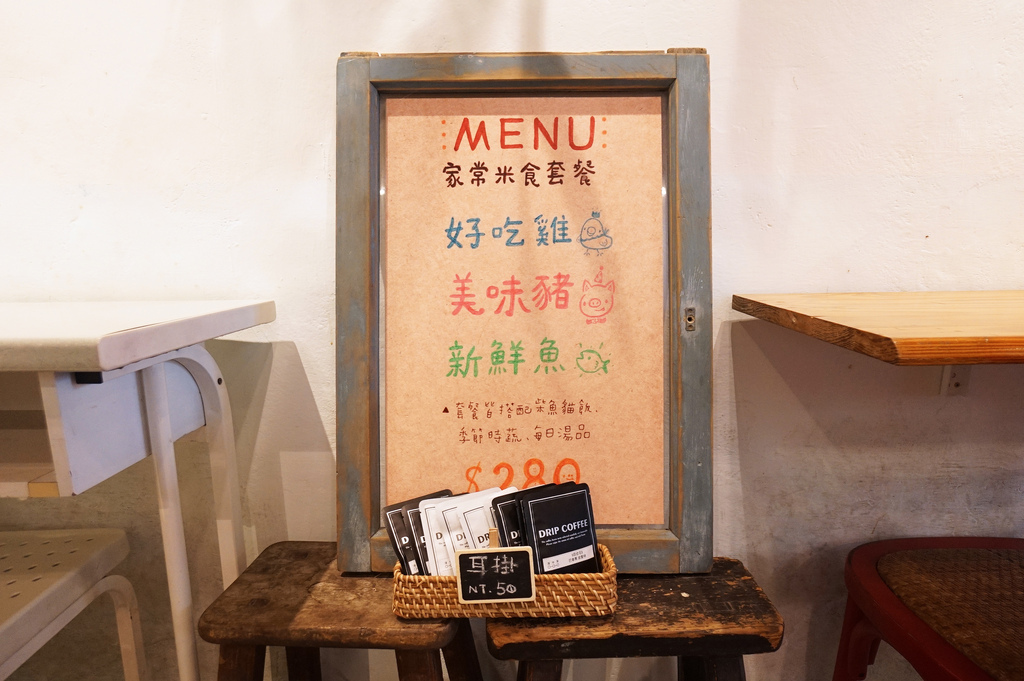 MENU
家常米食套餐
好吃雞
美味豬
新鮮魚
▲套餐皆搭配柴魚貓飯、
季節時蔬、每日湯品
$280
DRIP COFFEE
耳掛
NT.50